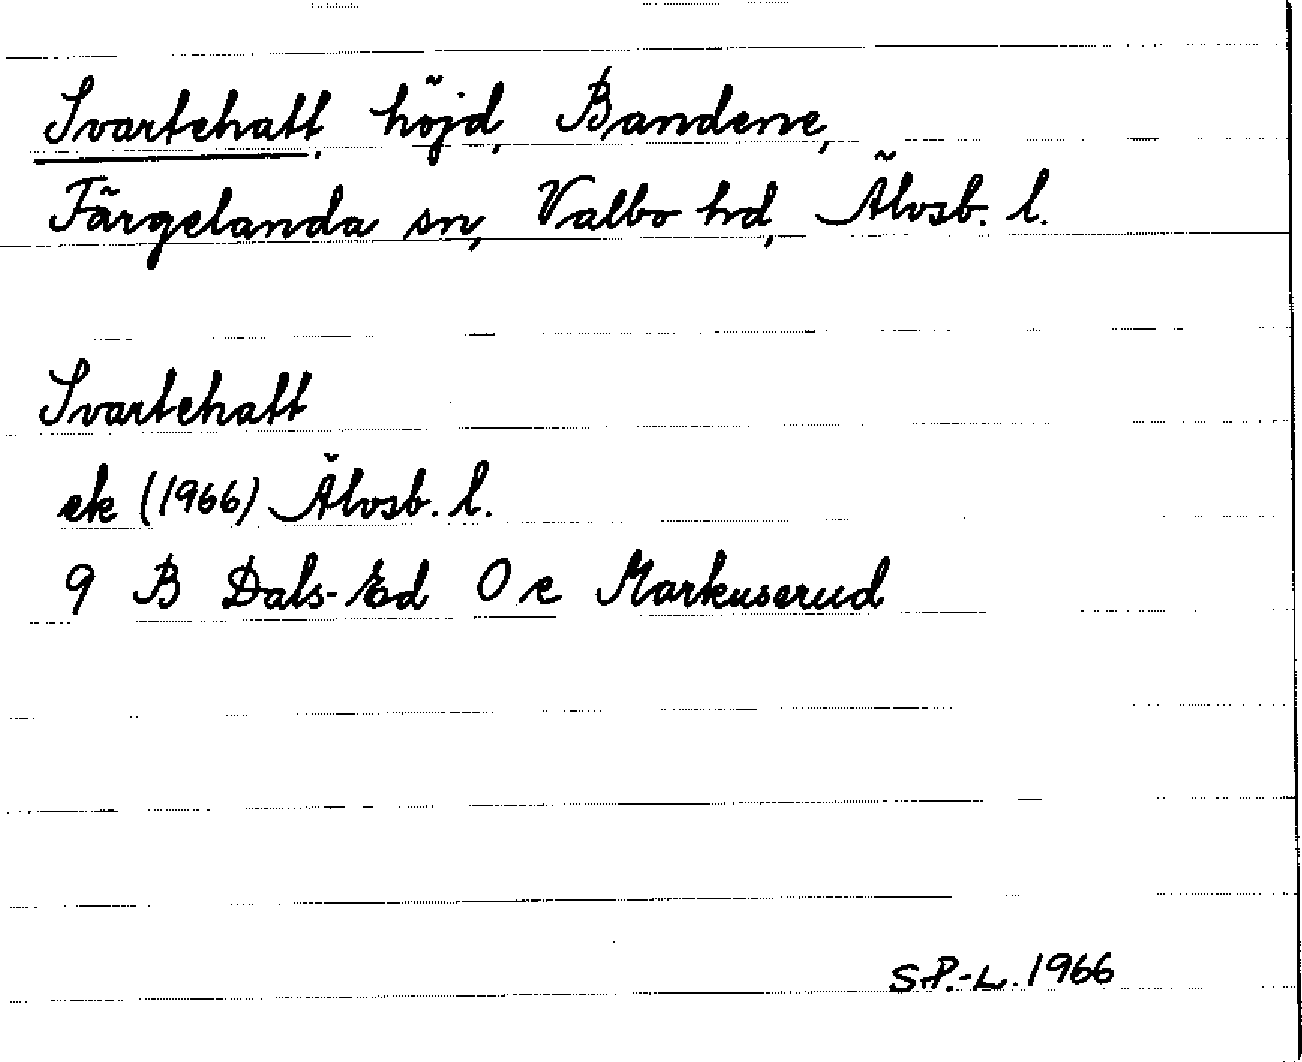 Svartehatt, höjd, Bandene,
Färgelanda sn, Valbo hd, Älvsb. l.
Svartehatt
ek (1966) Älvsb. l.
9 B Dals-Ed O e Markuserud
S.P.-L. 1966